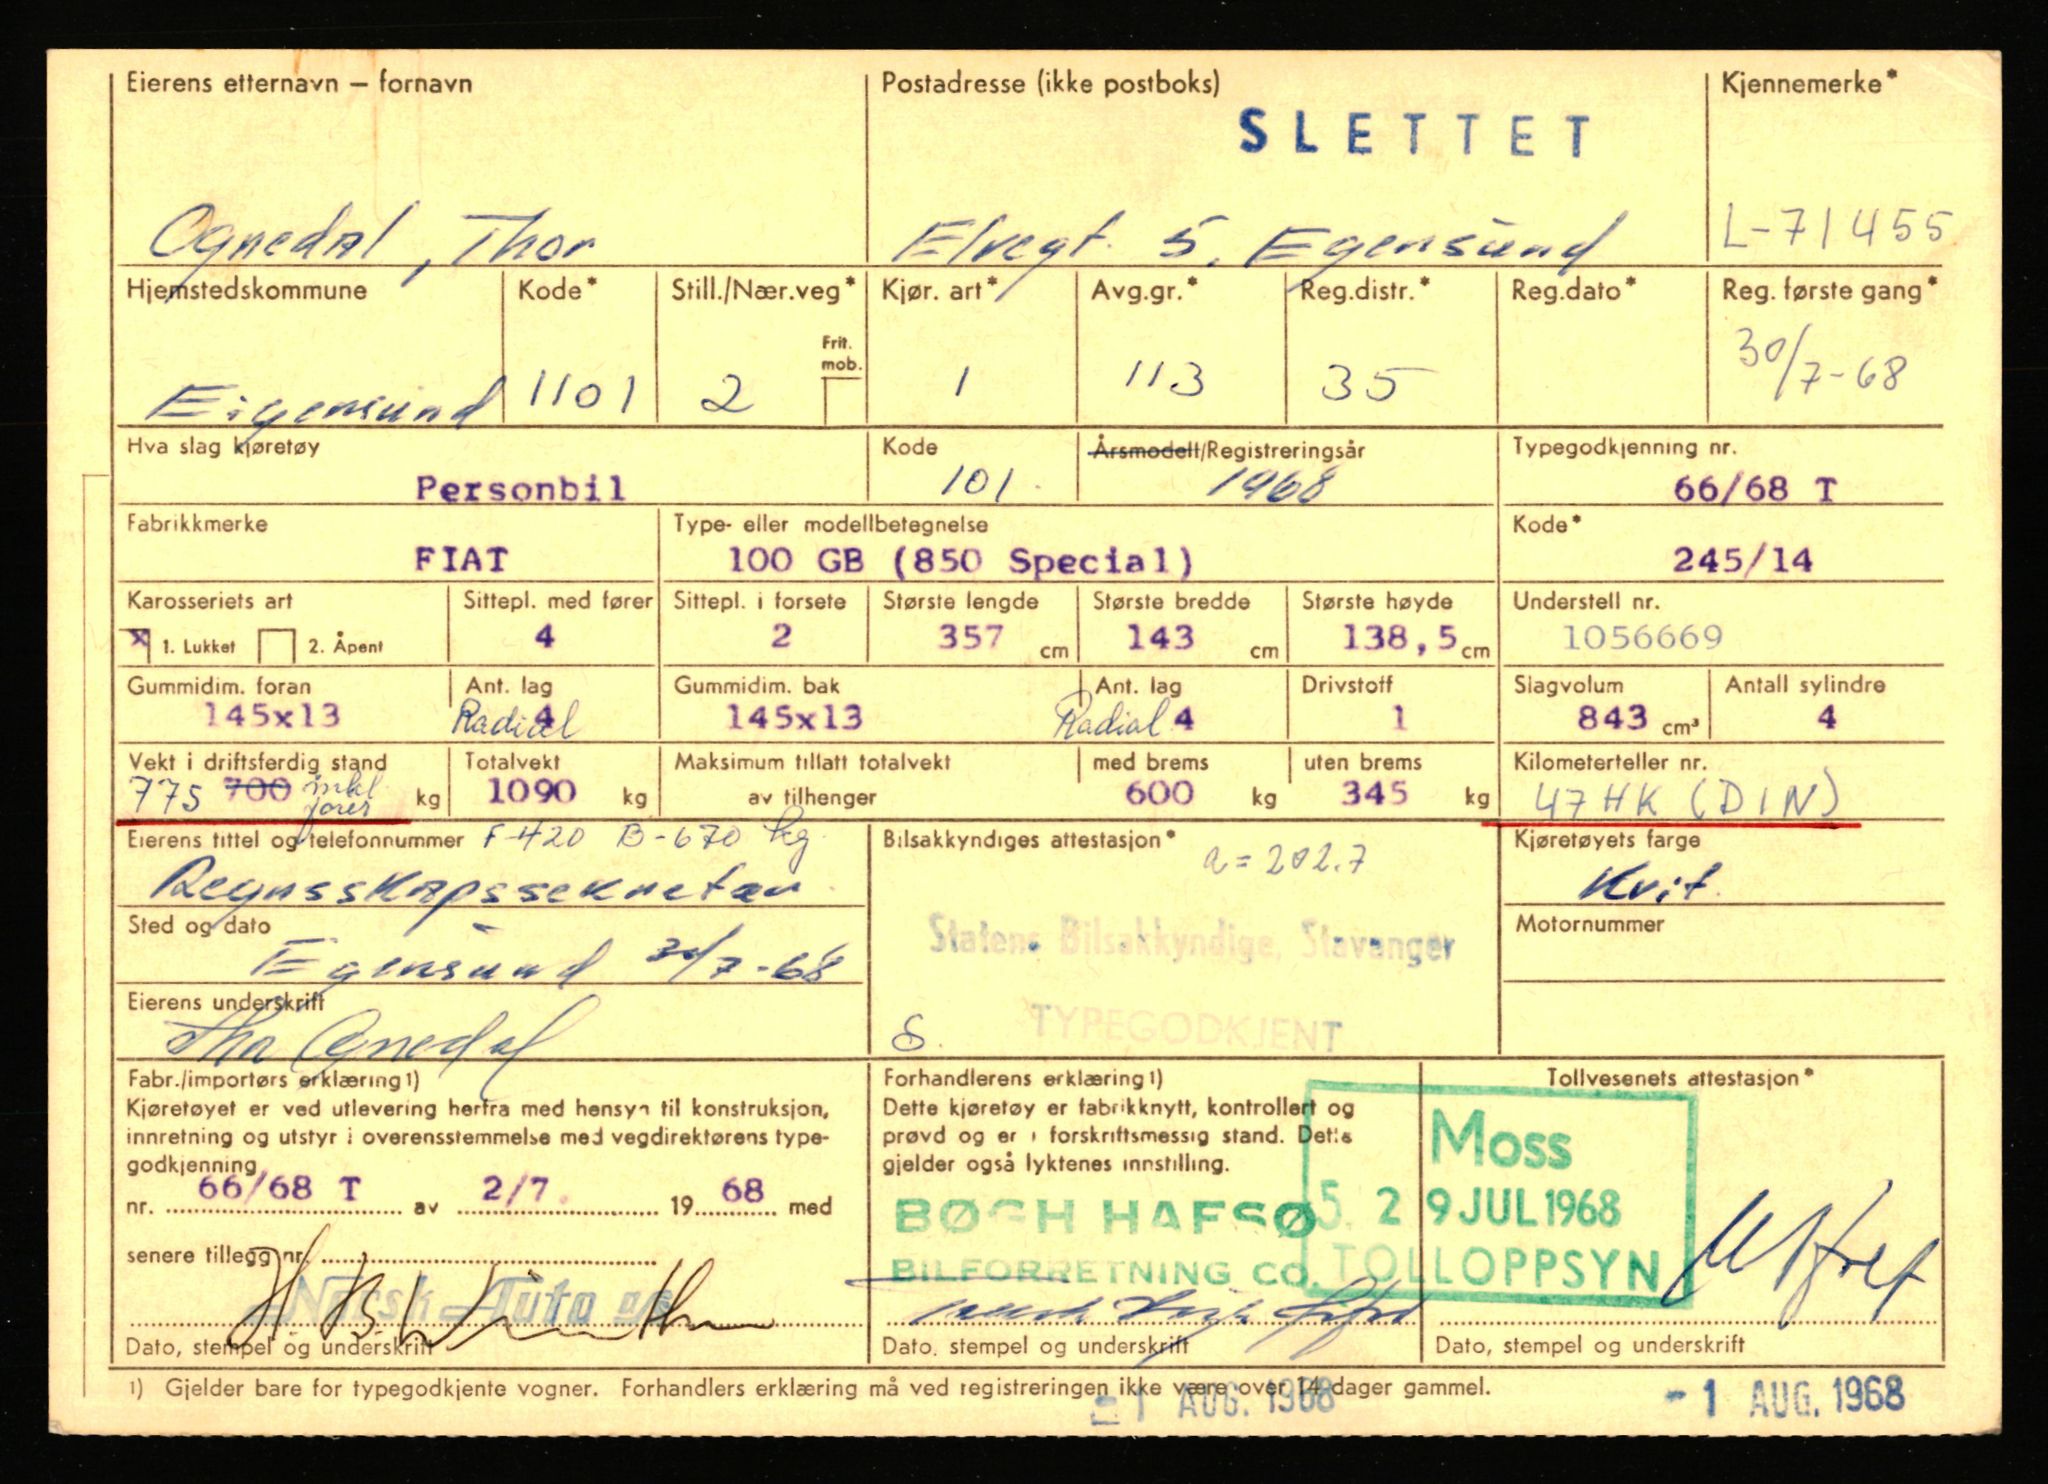 Eierens etternavn — fornavn Postadresse (ikke postboks) Kjennemerke*
SLETTET
Ognedal, Thor Elvegt. 5, Egersund L-71455
Hjemstedskommune Kode* Still./Nær.veg* Kjør. art* Avg.gr.* Reg.distr.* Reg.dato* Reg. første gang*
Frit. mob.
Eigersund 1101 2 1 113 35 30/7-68
Hva slag kjøretøy Kode Årsmodell/Registreringsår Typegodkjenning nr.
Personbil 101 1968 66/68 T
Fabrikkmerke Type- eller modellbetegnelse Kode*
FIAT 100 GB (850 Special) 245/14
Karosseriets art Sittepl. med fører Sittepl. i forsete Største lengde Største bredde Største høyde Understell nr.
x 1. Lukket 2. Åpent 4 2 357 cm 143 cm 138,5 cm 1056669
Gummidim. foran Ant. lag Gummidim. bak Ant. lag Drivstoff Slagvolum Antall sylindre
145x13 Radial 4 145x13 Radial 4 1 843 cm³ 4
Vekt i driftsferdig stand Totalvekt Maksimum tillatt totalvekt med brems uten brems Kilometerteller nr.
775 700 inkl fører kg 1090 kg av tilhenger 600 kg 345 kg 47 HK (DIN)
Eierens tittel og telefonnummer F-420 B-670 kg Bilsakkyndiges attestasjon* Kjøretøyets farge
a = 202.7
Regnsskapssekretær Kvit.
Sted og dato Statens Bilsakkyndige, Stavanger Motornummer
Egersund 30/7-68
Eierens underskrift TYPEGODKJENT
Thor Ognedal S.
Fabr./importørs erklæring 1) Forhandlerens erklæring 1) Tollvesenets attestasjon*
Kjøretøyet er ved utlevering herfra med hensyn til konstruksjon, Dette kjøretøy er fabrikknytt, kontrollert og
innretning og utstyr i overensstemmelse med vegdirektørens type- prøvd og er i forskriftsmessig stand. Dette
godkjenning gjelder også lyktenes innstilling.
Moss
nr. 66/68 T av 2/7. 19 68 med BØGH HAFSØ 5. 29 JUL 1968
senere tillegg nr. BILFORRETNING CO. TOLLOPPSYN
Norsk Auto a/s
Dato, stempel og underskrift Dato, stempel og underskrift Dato, stempel og underskrift
1) Gjelder bare for typegodkjente vogner. Forhandlers erklæring må ved registreringen ikke være over 14 dager gammel.
-1 AUG. 1968 -1 AUG. 1968